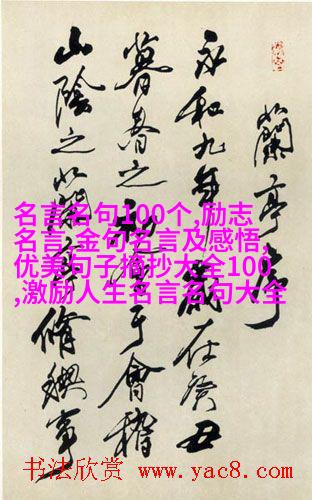 蘭亭序
永和九年歲在癸丑
暮春之初會于會稽
山陰之蘭亭脩禊事
名言名句100个,励志
名言,金句名言及感悟,
优美句子摘抄大全100
,激励人生名言名句大全
书法欣赏 www.yac8.com